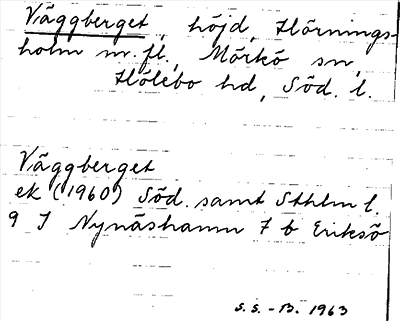 Väggberget, höjd, Hörnings-
holm m. fl., Mörkö sn,
Hölebo hd, Söd. l.
Väggberget
ek (1960) Söd. samt Sthlm l.
9 I Nynäshamn 7 b Eriksö
S.S.-B. 1963